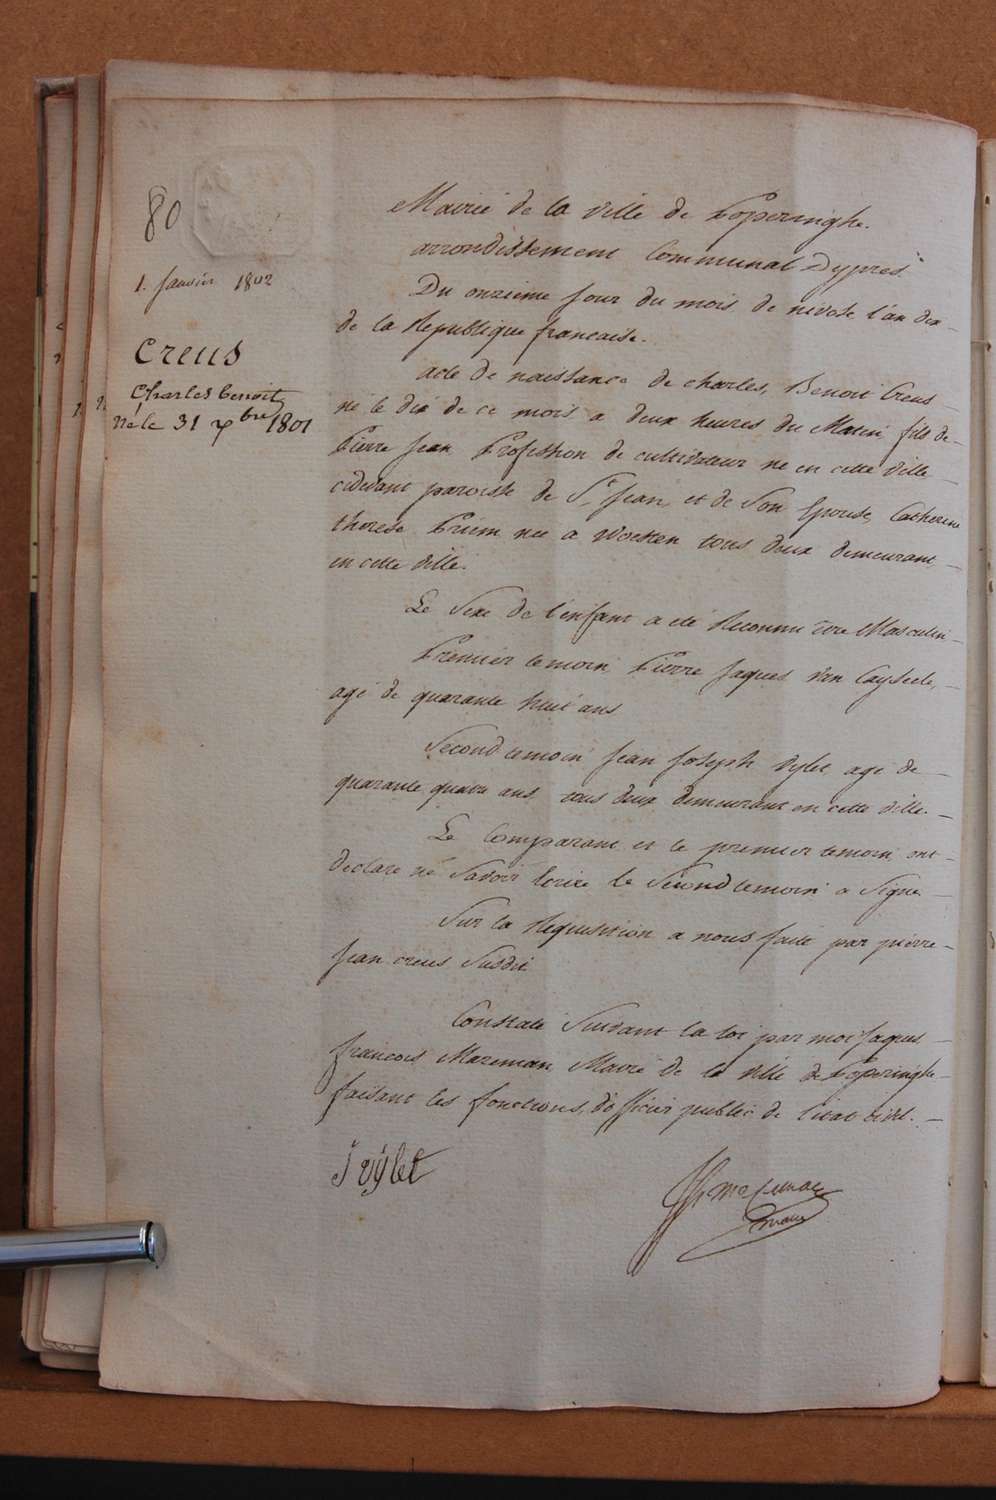 80
1. Janvier 1802
Creus
Charles benoit
Né le 31 xbre 1801
Mairie de la ville de Poperinghe.
arrondissement Communal Dypres.
Du onzieme jour du mois de nivose l'an dix
de la Republique francaise.
acte de naissance de charles, Benoit Creus
né le dix de ce mois a deux heures du Matin, fils de
Pierre Jean Profession de cultivateur ne en cette ville
cidevant paroisse de St Jean, et de Son Epouse, Catherine
therese Priem nee a Woesten tous deux demeurant
en cette ville.
Le Sexe de l'enfant a eté Reconnu être Masculin
Premier temoin, Pierre Jaques Van Cayseele,
agé de quarante huit ans
Second temoin Jean Joseph Vylet agé de
quarante quatre ans, tous deux demeurant en cette ville.
Le Comparant et le premier temoin ont
declaré ne Savoir Ecrire le Second temoin a Signé
Sur la Requisition a nous faite par pierre
Jean creus Susdit
Constaté Suivant la loi par moi Jaques
francois Mazeman, Maire de la ville de Poperinghe
faisant les fonctions, d'officier public de l'etat civil.
J vÿlet
maire